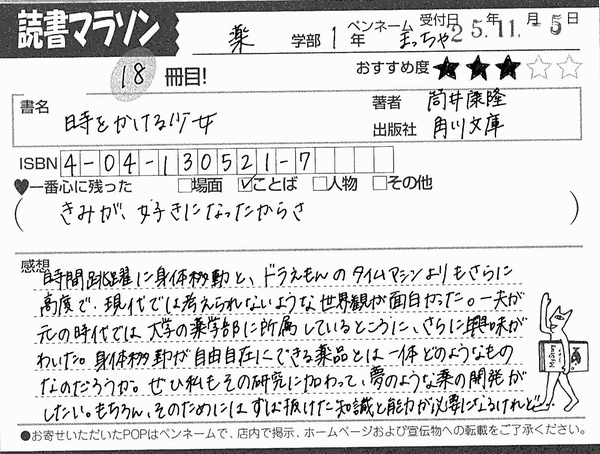 読書マラソン
薬 学部 1 年 ペンネーム まっちゃ 受付日 25年11月-5日
18 冊目! おすすめ度 ★★★☆☆
書名 時をかける少女 著者 筒井康隆
出版社 角川文庫
ISBN 4-04-130521-7
♥一番心に残った □場面 ☑ことば □人物 □その他
(きみが、好きになったからさ)
感想
時間跳躍に身体移動と、ドラえもんのタイムマシンよりもさらに
高度で、現代では考えられないような世界観が面白かった。一夫が
元の時代では大学の薬学部に所属しているところに、さらに興味が
わいた。身体移動が自由自在にできる薬品とは一体どのようなもの
なのだろうか。ぜひ私もその研究に加わって、夢のような薬の開発が
したい。もちろん、そのためにはずば抜けた知識と能力が必要になるけれど…
●お寄せいただいたPOPはペンネームで、店内で掲示、ホームページおよび宣伝物への転載をご了承ください。